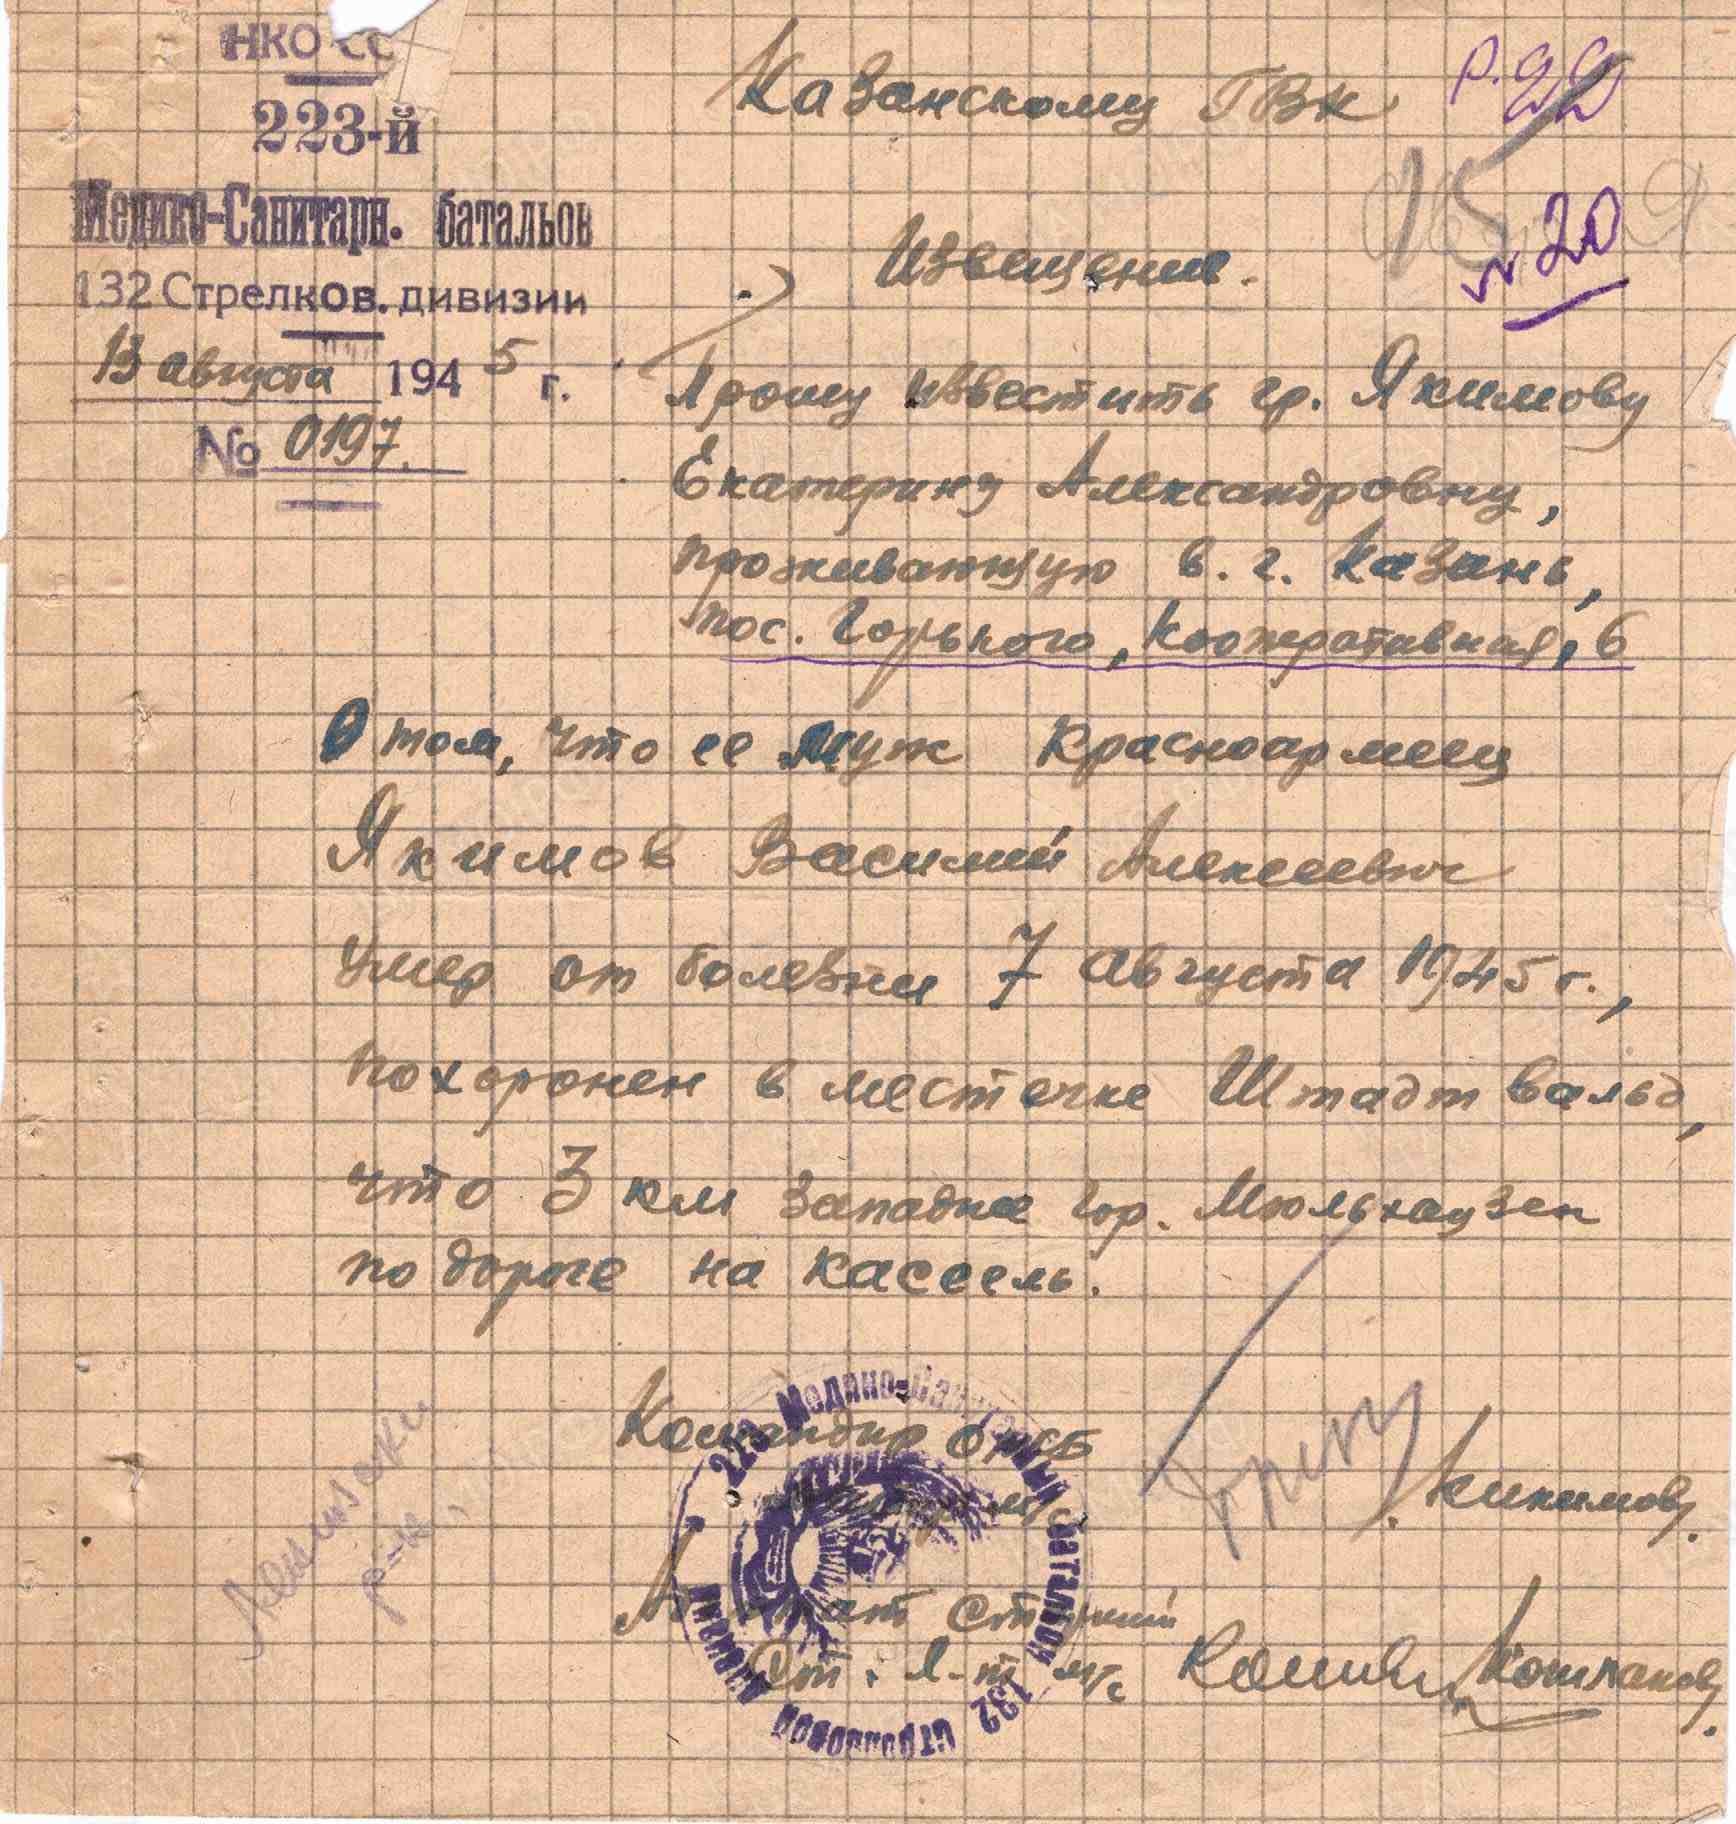 НКО СС
223-й
Медико-Санитарн. батальон
132 Стрелков. дивизии
13 августа 1945 г.
№ 0197.
Казанскому ГВК
№ 20
Извещение.
Прошу известить гр. Якимову
Екатерину Александровну,
проживающую в. г. Казань,
пос. Горького, Кооперативная, 6
О том, что ее муж красноармеец
Якимов Василий Алексеевич
умер от болезни 7 августа 1945 г.,
похоронен в местечке Штадтвальд,
что 3 км западнее гор. Мюльхаузен
по дороге на Кассель.
Командир ОМСБ
м/с
Ст. л-т м/с
223 Медико-Санитарный батальон 132 стрелковой дивизии